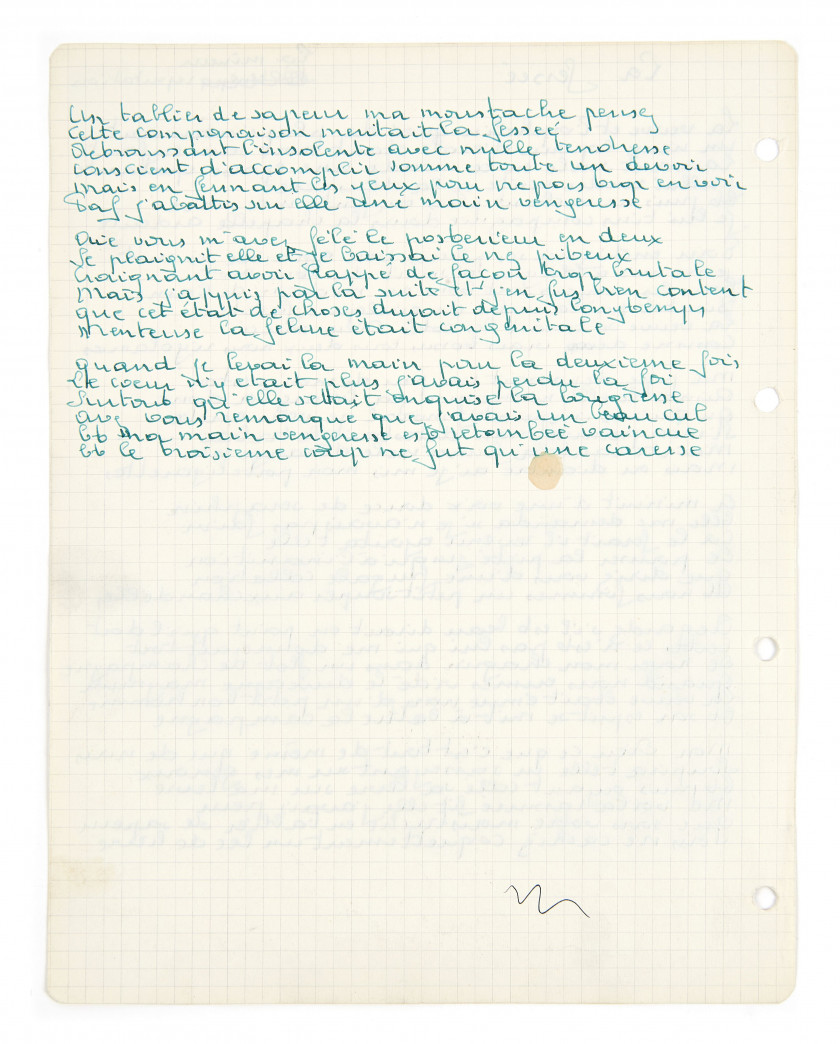 Un tablier de sapeur ma moustache pensez
Cette comparaison meritait la fessée
Retroussant l'insolente avec nulle tendresse
conscient d'accomplir somme toute un devoir
mais en fermant les yeux pour ne pas trop en voir
Paf j'abattis sur elle une main vengeresse
Aïe vous m'avez fêlé le posterieur en deux
Se plaignit elle et je baissai le nez piteux
Craignant avoir frappé de façon trop brutale
Mais j'appris par la suite et j'en fus bien content
que cet état de choses durait depuis longtemps
Menteuse la fêlure était congenitale
quand je levai la main pour la deuxieme fois
Le coeur n'y etait plus j'avais perdu la foi
Surtout qu'elle s'etait enquise la bougresse
avez vous remarqué que j'avais un beau cul
Et ma main vengeresse est retombée vaincue
Et le troisieme coup ne fut qu'une caresse